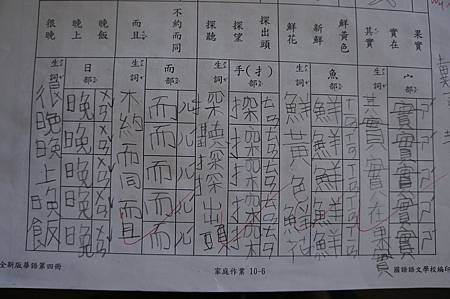 果實
實在
其實
宀部
生詞
實
實
實
實
實
其實實在果實
鮮黃色
新鮮
鮮花
魚部
生詞
鮮
鮮
鮮
鮮
鮮
鮮黃色鮮花
探出頭
探望
探聽
手(扌)部
生詞
探
探
探
探
探
探出頭
不約而同
而且
而部
生詞
而
而
而
而
而
不約而同而且
晚飯
晚上
很晚
日部
生詞
晚
晚
晚
晚
晚
很晚晚上晚飯
全新版華語第四冊
家庭作業 10-6
國語語文學校編印